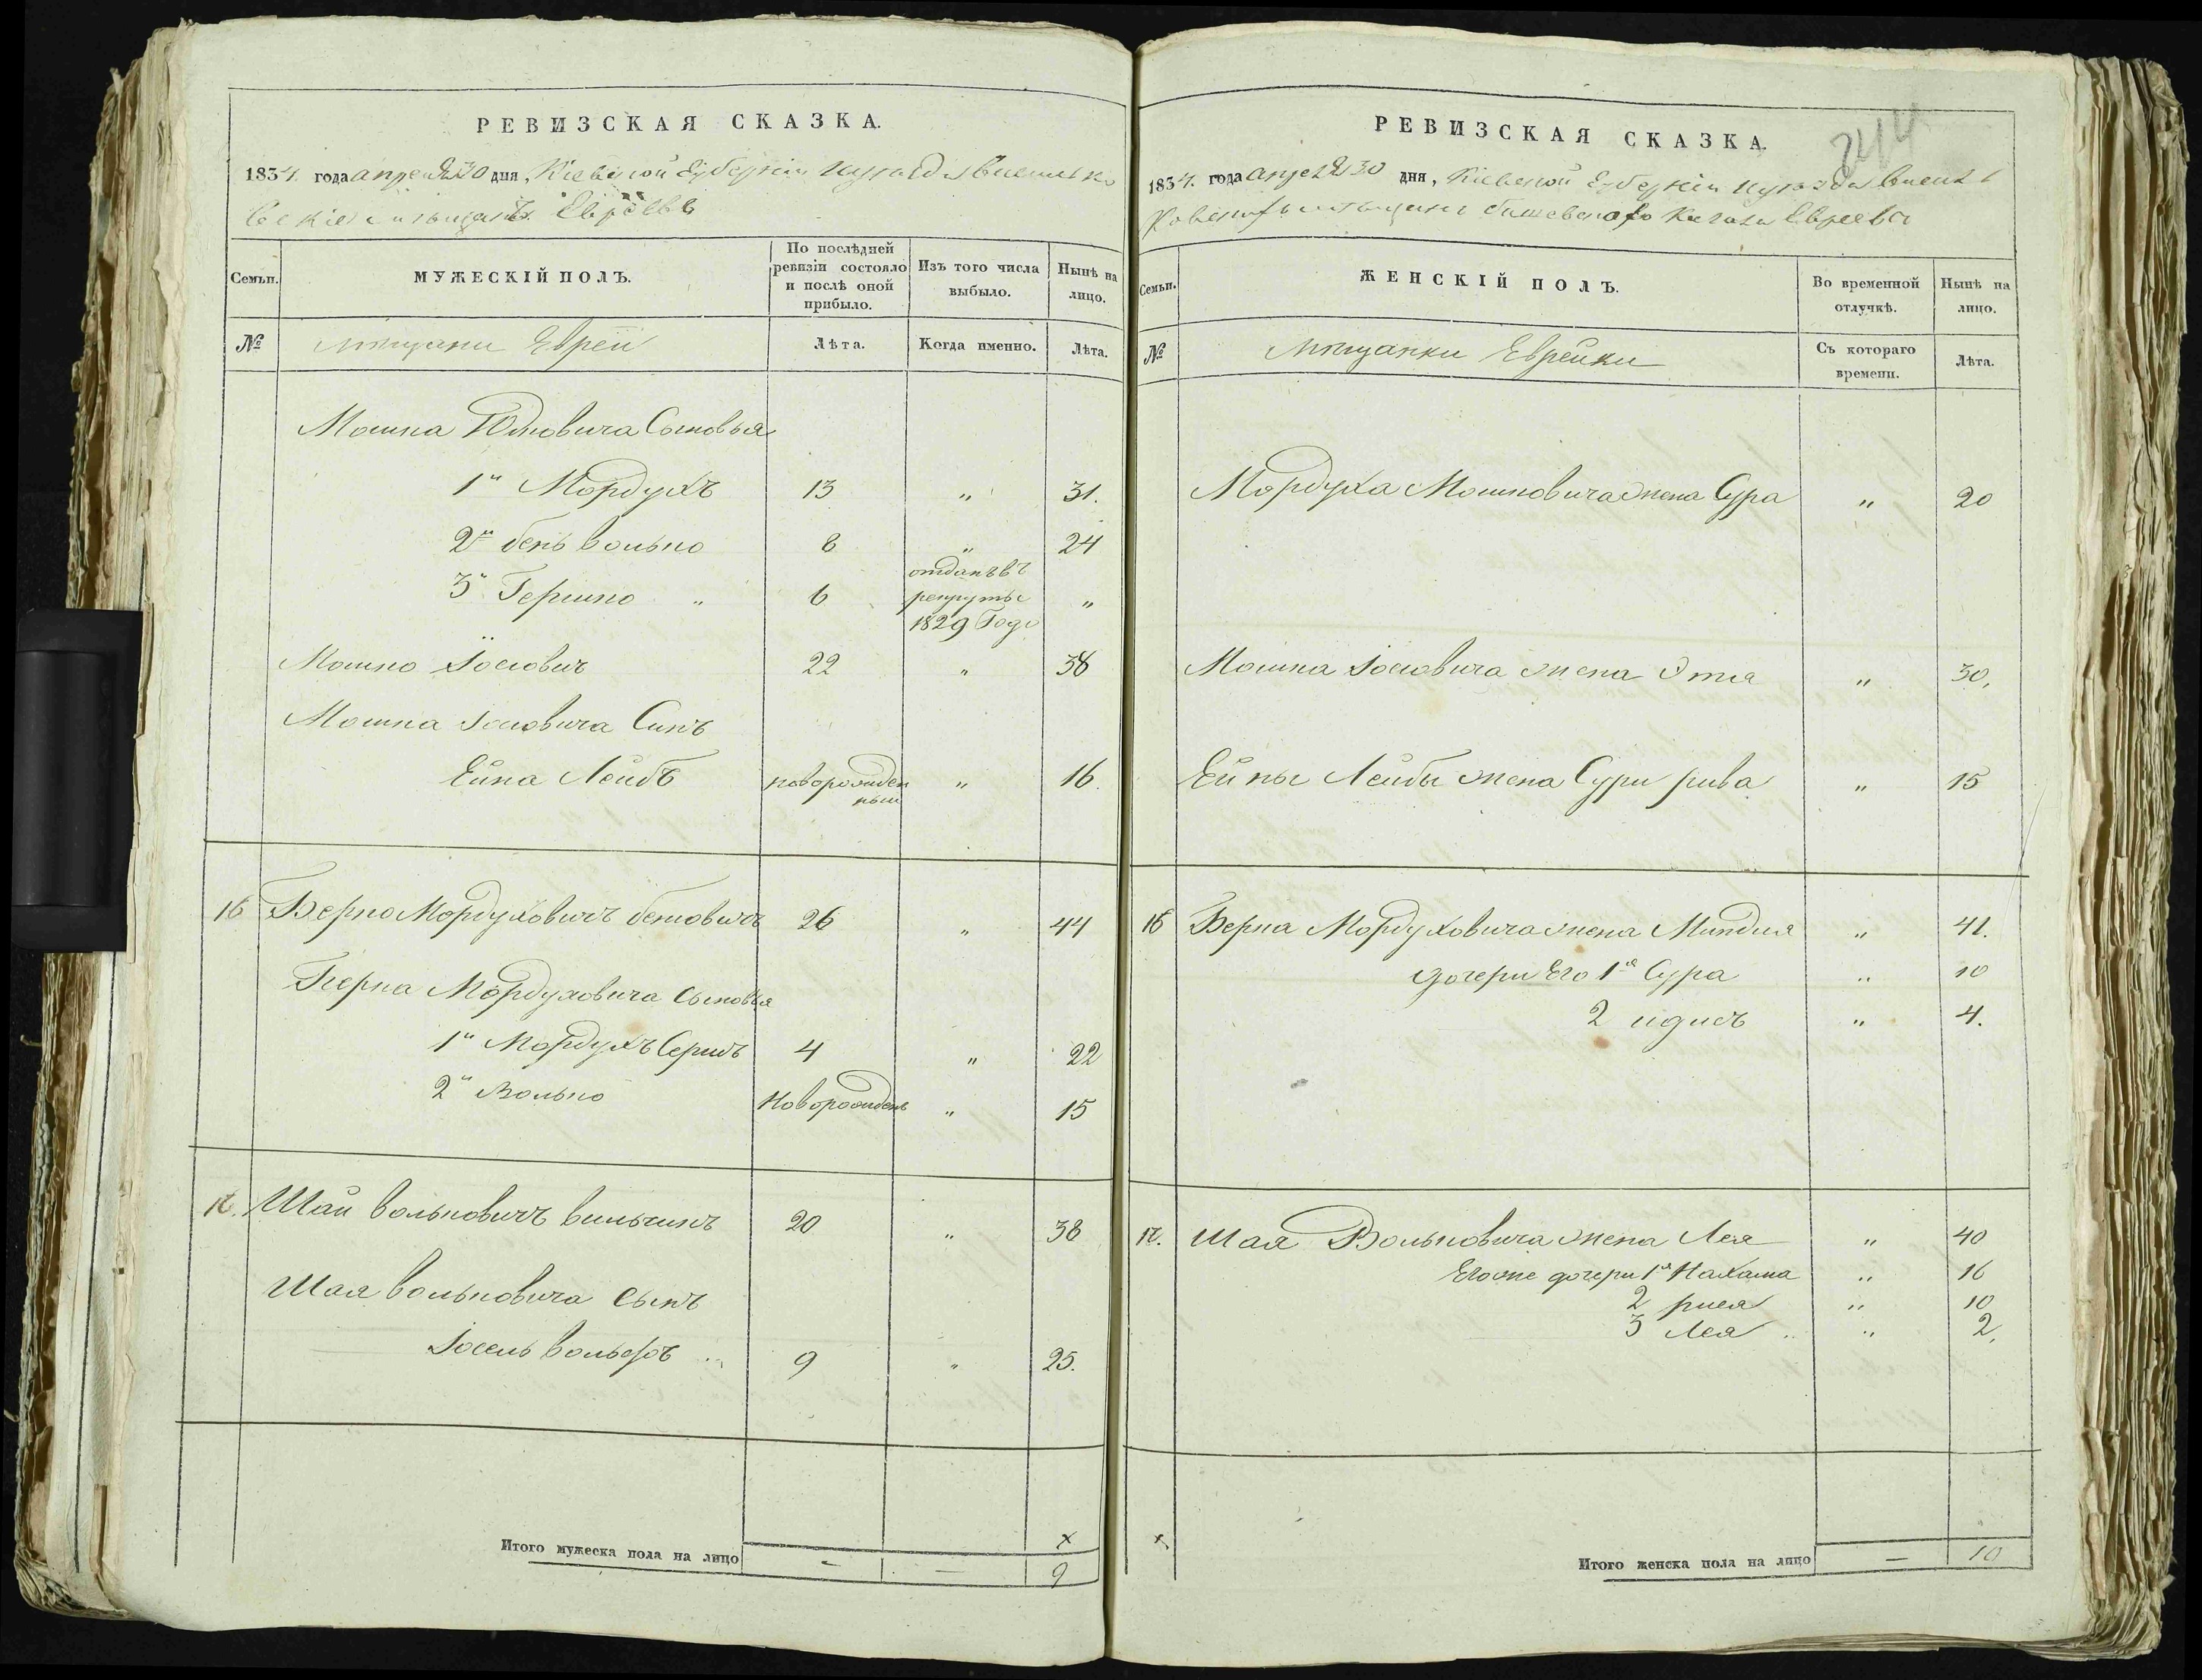 РЕВИЗСКАЯ СКАЗКА.
1834. года апреля 30 дня, Кіевской Губерніи уезда
мещанъ Евреевъ
Семьи.
МУЖЕСКІЙ ПОЛЪ.
По послѣдней ревизіи состояло и послѣ оной прибыло.
Изъ того числа выбыло.
Нынѣ на лицо.
№
мѣщани Евреи
Лѣта.
Когда именно.
Лѣта.
Мошка Юдковича Сыновья
1й Мордухъ 13 " 31.
2й бенъ волько 8 " 24
3й Гершко " 6 отданъ въ рекруты 1829 Года "
Мошко Іосіовичъ 22 " 38
Мошка Іосіовича Синъ
Ейна Лейбъ новорожденный " 16.
16 Берко Мордуховичъ 26 " 44
Берка Мордуховича сыновья
1й Мордухъ 4 " 22
2й Волько Новорожденъ " 15
Шаи Вольковичъ 20 " 38
Шая Вольковича сынъ
Іосель Вольфъ 9 " 25.
Итого мужеска пола на лицо — — 9
РЕВИЗСКАЯ СКАЗКА.
1834. года апреля 30 дня, Кіевской Губерніи уезда
кагала Евреевъ
Семьи.
ЖЕНСКІЙ ПОЛЪ.
Во временной отлучкѣ.
Нынѣ на лицо.
№
Мѣщанки Еврейки
Съ котораго времени.
Лѣта.
Мордуха Мошковича жена Сура " 20
Мошка Іосіовича жена Этля " 30.
Ейны Лейбы жена Сури рива " 15
16 Берка Мордуховича жена Миндля " 41.
дочери Его 1я Сура " 10
2 идись " 4.
17. Шая Вольковича жена Лея " 40
Егоже дочери 1я Нахама " 16
2 рися " 10
3 Лея " 2.
Итого женска пола на лицо — 10